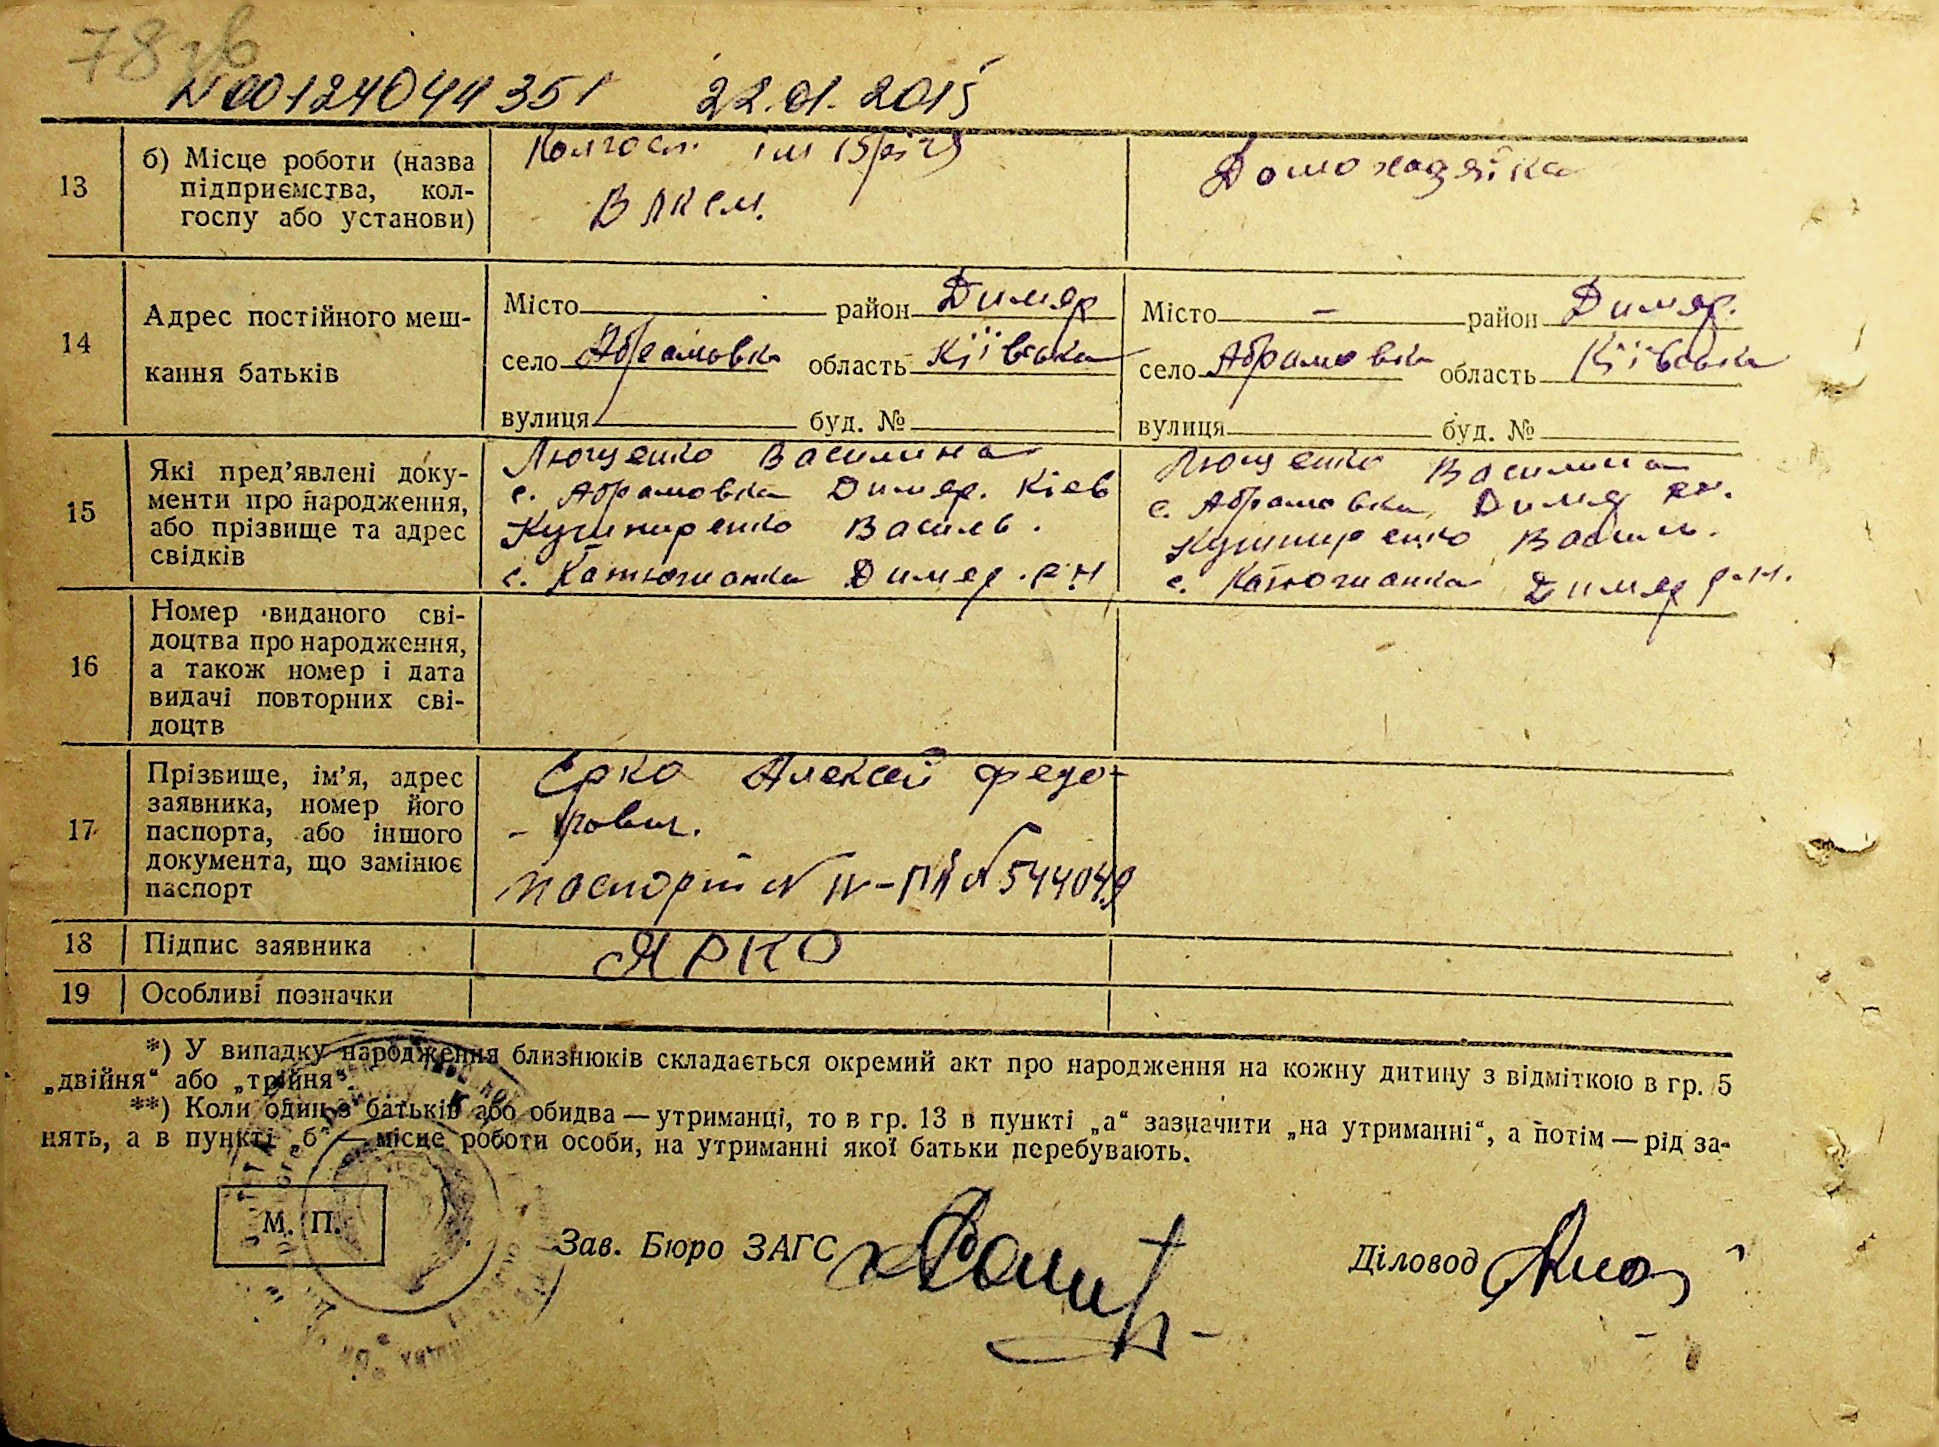 78 зв
N 00124044351 22.01.2015
13
б) Місце роботи (назва
підприємства, кол-
госпу або установи)
Колгосп. ім 15річя
ВЛКСМ.
Домохазяйка
14
Адрес постійного меш-
кання батьків
Місто район Димер
село Абрамовка область Київська
вулиця буд. №
Місто — район Димер.
село Абрамовка область Київська
вулиця буд. №
15
Які пред’явлені доку-
менти про народження,
або прізвище та адрес
свідків
Лющенко Василина
с. Абрамовка Димер. Київ
Кушниренко Василь.
с. Катюжанка Димер. р-н
Лющенко Василина
с. Абрамовка Димер рн.
Кушниренко Василь.
с. Катюжанка Димер р-н.
16
Номер виданого сві-
доцтва про народження,
а також номер і дата
видачі повторних сві-
доцтв
17
Прізвище, ім’я, адрес
заявника, номер його
паспорта, або іншого
документа, що замінює
паспорт
Ерко Алексей Федо-
- рович.
паспорт N IV-ПЯ N 544049
18 Підпис заявника
ЯРКО
19 Особливі позначки
*) У випадку народження близнюків складається окремий акт про народження на кожну дитину з відміткою в гр. 5
„двійня“ або „трійня“.
**) Коли один з батьків або обидва — утриманці, то в гр. 13 в пункті „а“ зазначити „на утриманні“, а потім — рід за-
нять, а в пункті „б“ — місце роботи особи, на утриманні якої батьки перебувають.
М. П.
Зав. Бюро ЗАГС
Діловод